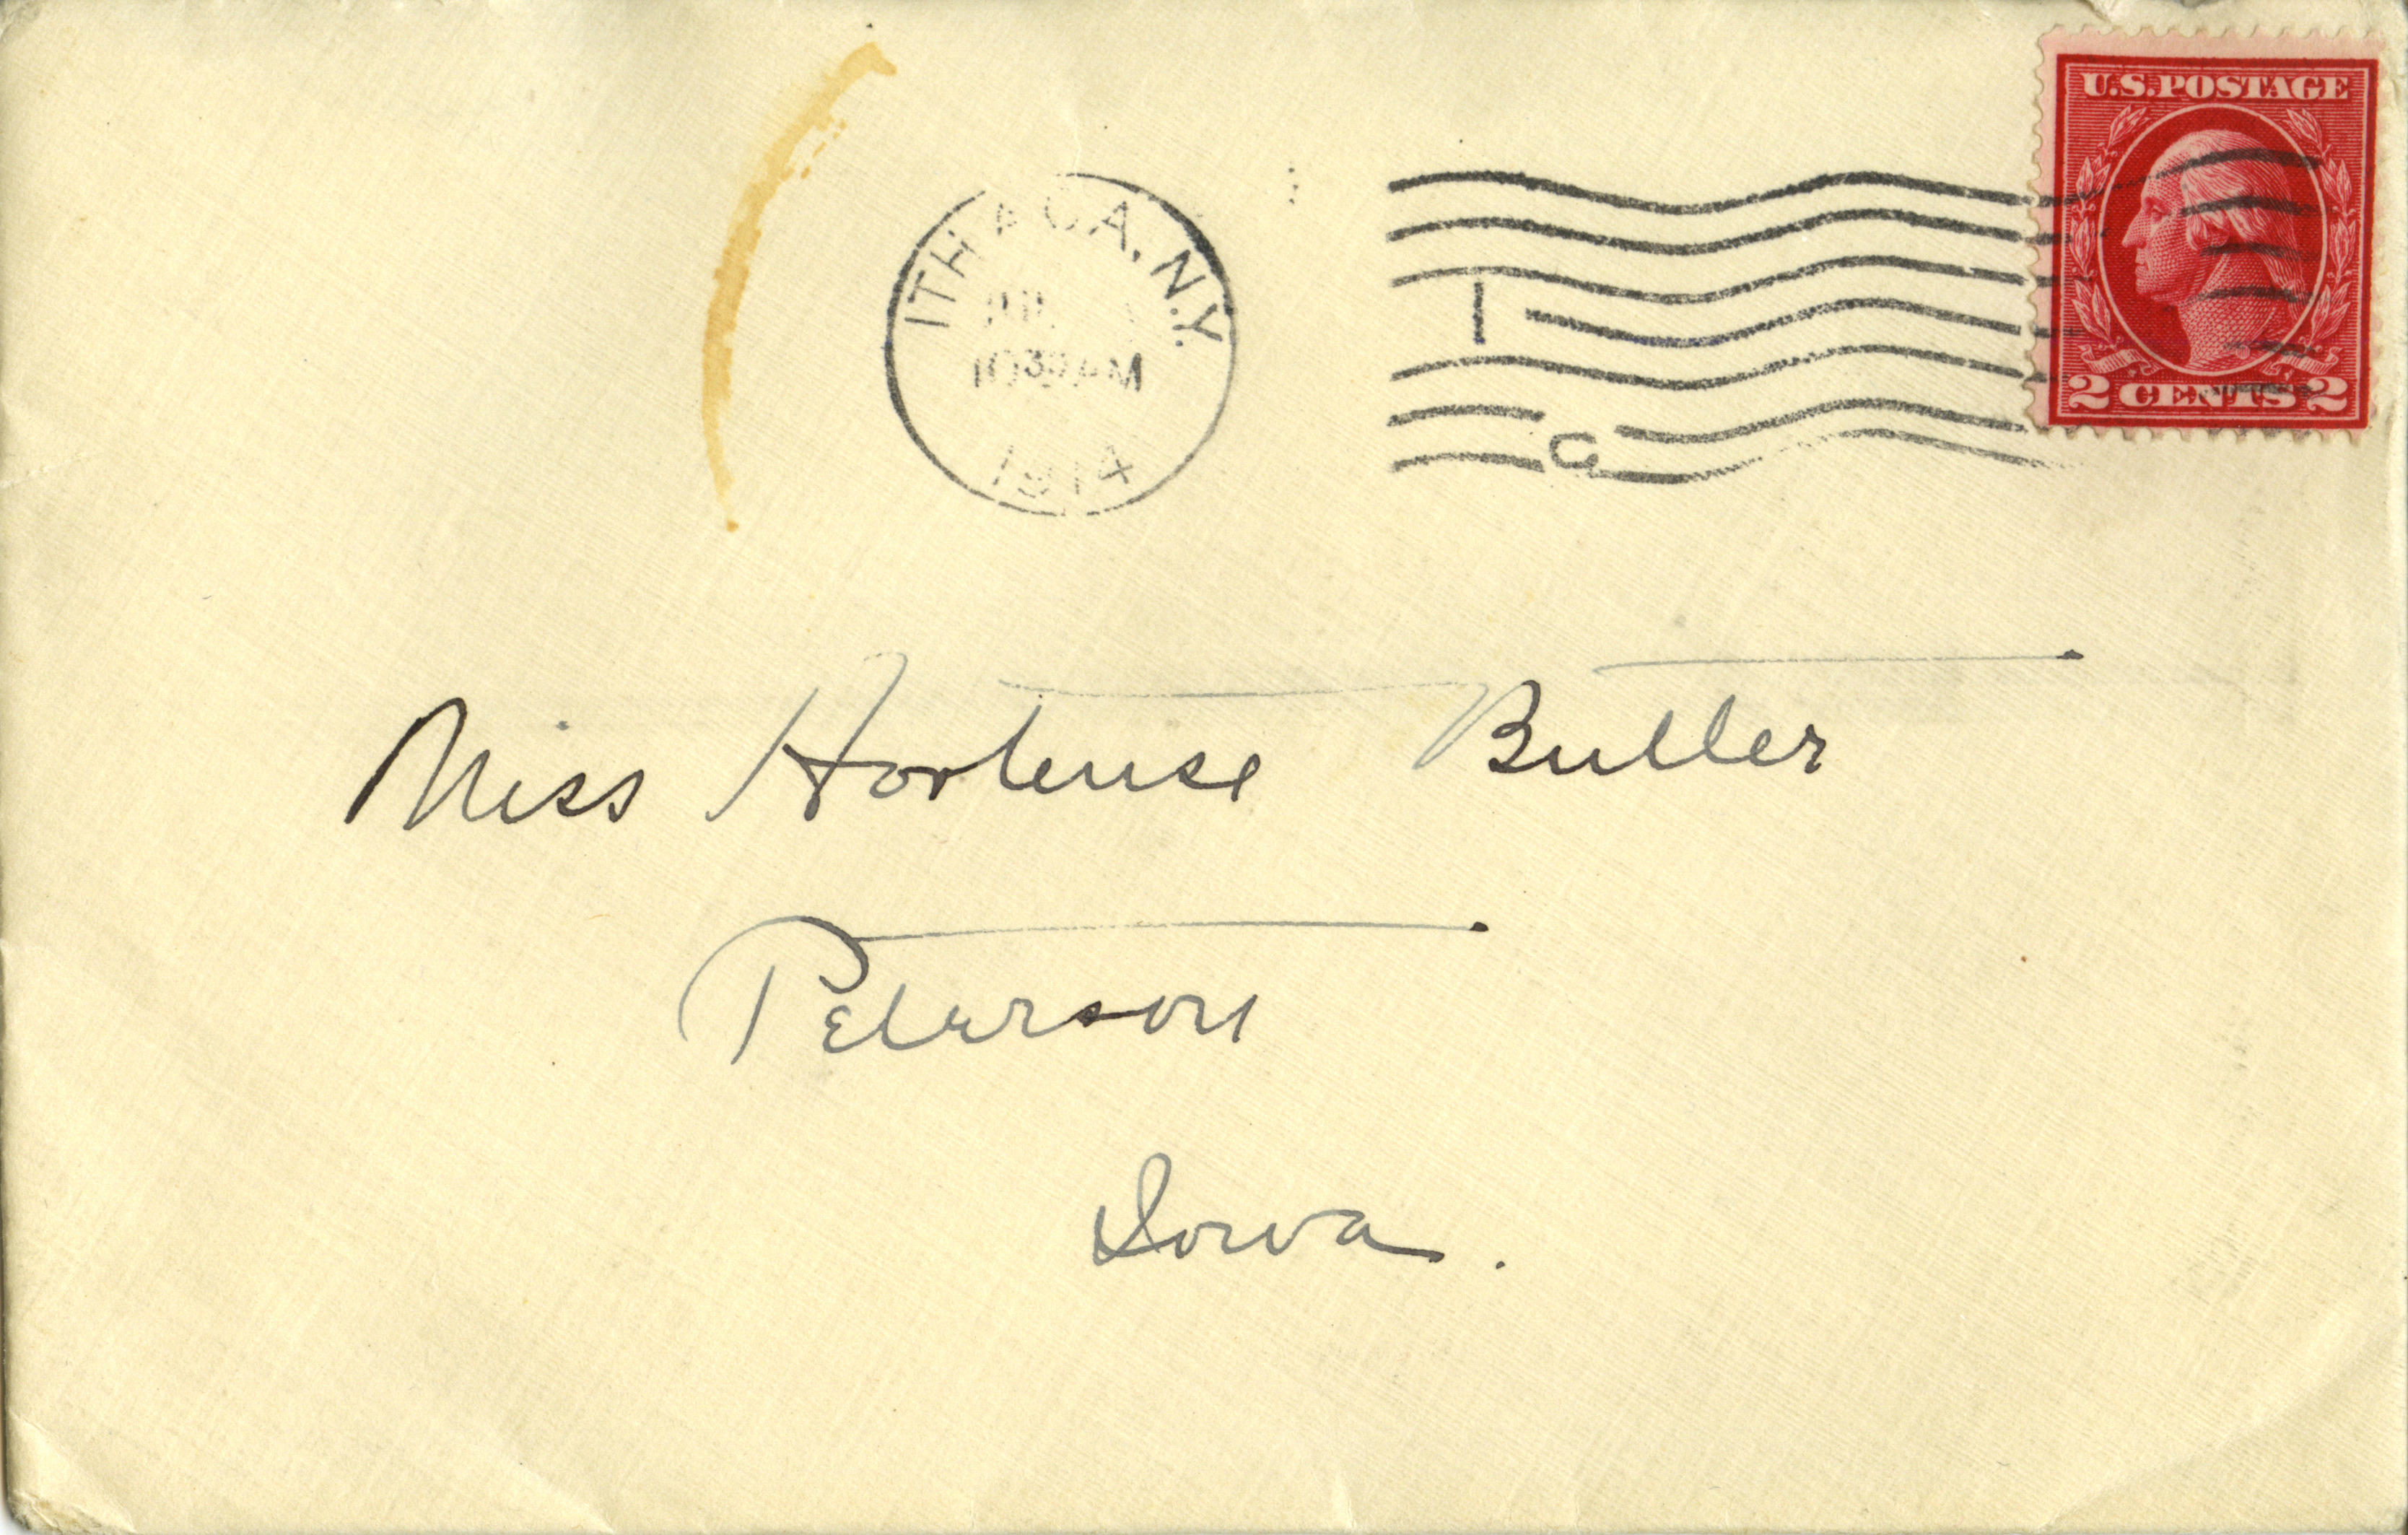 U.S. POSTAGE
ITHACA, N.Y.
10 30 AM
1914
1
G
2 CENTS 2
Miss Hortense Butler
Peterson
Iowa.